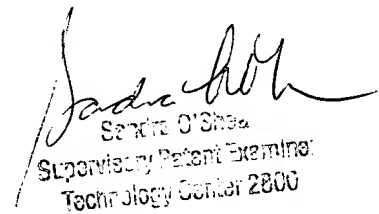 Sandra O'Shea
Supervisory Patent Examiner
Technology Center 2800